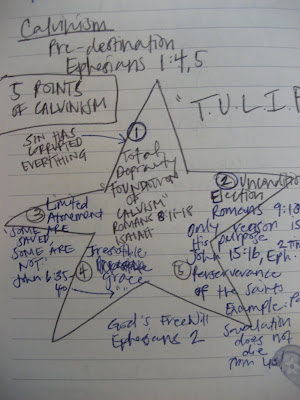 Calvinism
Pre-destination
Ephesians 1:4,5
5 POINTS
OF CALVINISM
"T.U.L.I.P
SIN HAS
CORRUPTED
EVERYTHING
1
Total
Depravity
FOUNDATION
OF
CALVINISM
ROMANS 3:11-18
ISAIAH
2 Uncondition
Election
Romans 9:18
Only reason is
His purpose
John 15:16, Eph.
3 Limited
Atonement
SOME ARE
SAVED,
SOME ARE
NOT.
John 6:35-
40
4 Irresistible
Grace
5
Perserverance
of the Saints
Example:
Salvation
does not
die
God's Freewill
Ephesians 2